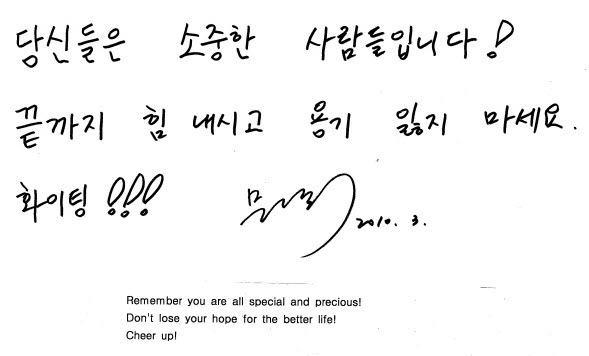 당신들은 소중한 사람들입니다!
끝까지 힘 내시고 용기 잃지 마세요.
화이팅!!! 2010. 3.
Remember you are all special and precious!
Don't lose your hope for the better life!
Cheer up!